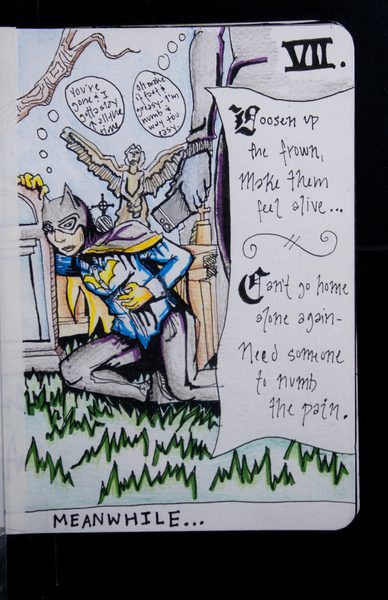 VII.
You're
gone & I
gotta stay
↑ all the
time
oh make
it fast &
greasy - I'm
numb &
way too
easy.
Loosen up
the frown,
Make them
feel alive...
Can't go home
alone again-
Need someone
to numb
the pain.
MEANWHILE...